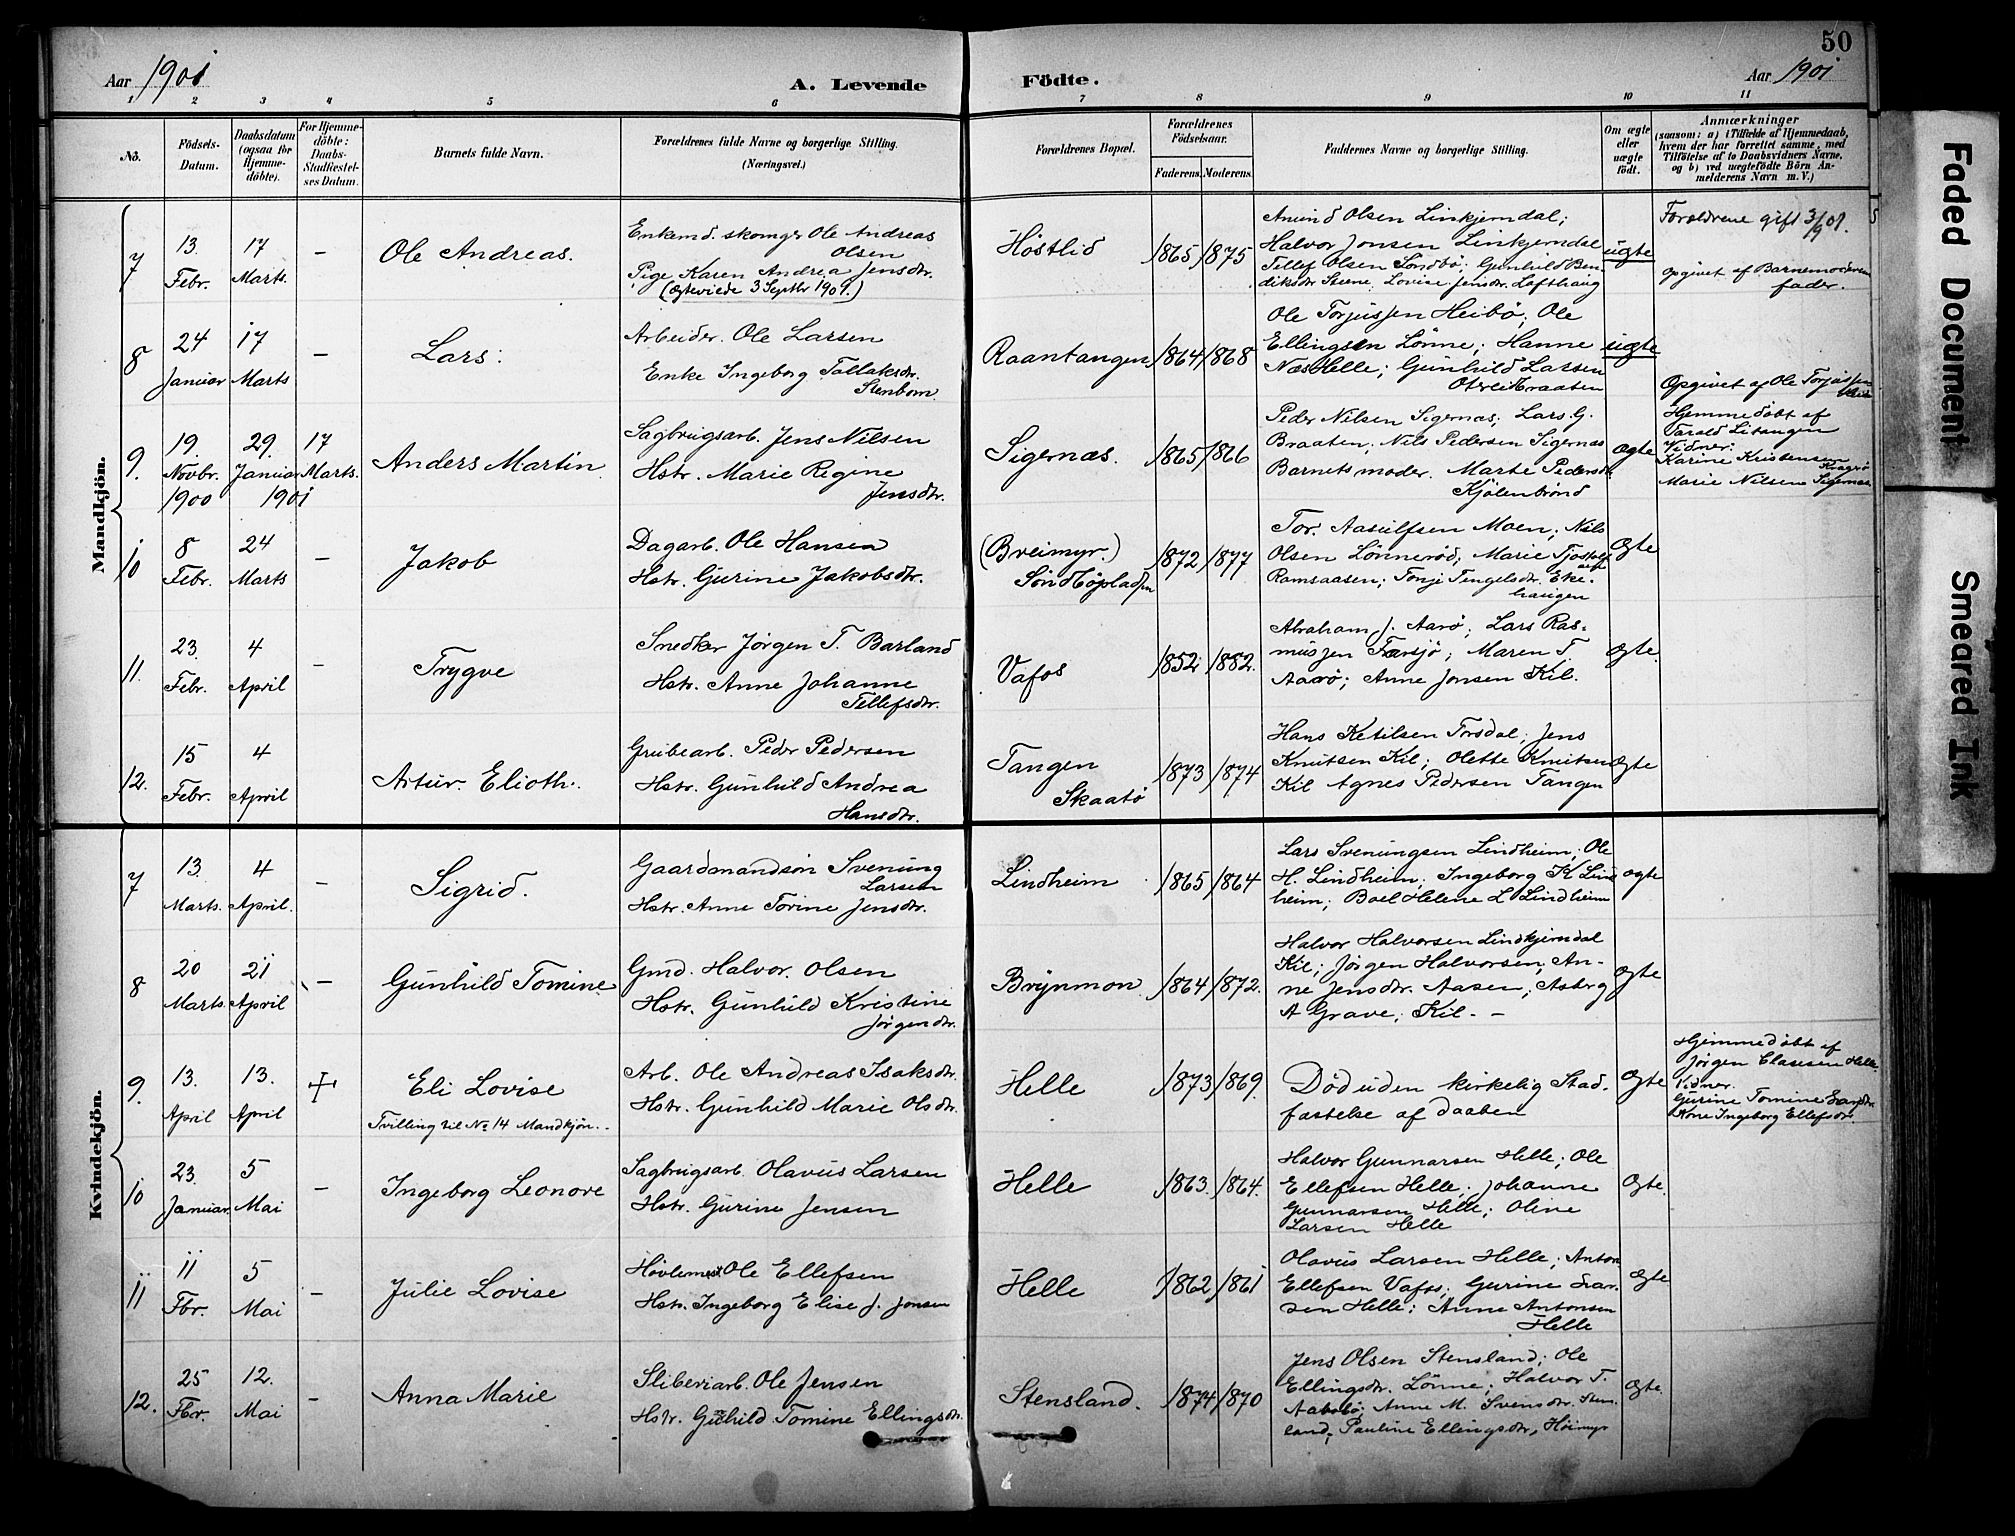 50
Aar 1901
A. Levende Födte.
Aar 1901
1 2 3 4 5 6 7 8 9 10 11
No.
Födsels-Datum.
Daabsdatum (ogsaa for Hjemme-döbte).
For Hjemme-döbte: Daabs-Stadfæstel-ses Datum.
Barnets fulde Navn.
Forældrenes fulde Navne og borgerlige Stilling.
(Næringsvei.)
Forældrenes Bopæl.
Forældrenes Födselsaar.
Faderens. Moderens.
Faddernes Navne og borgerlige Stilling.
Om ægte eller uægte födt.
Anmærkninger
(saasom: a) i Tilfælde af Hjemmedaab,
hvem der har forrettet samme, med
Tilföielse af to Daabsvidners Navne,
og b) ved uægtefödte Börn An-
melderens Navn m. V.)
Mandkjön.
7
13 Febr.
17 Marts.
–
Ole Andreas.
Enkemd. skomger Ole Andreas
Olsen
Pige Karen Andrea Jensdtr.
(Ægteviede 3 Septbr 1901.)
Höstlid
1865 1875
Amund Olsen Linkjerndal;
Halvor Jonsen Linkjerndal
Tellef Olsen Sondbö; Gunhild Ben-
diksdtr Steene, Lovise Jensdtr. Lofthaug
uægte
Forældrene gift 3/9 01.
Opgivet af Barnemoderens
fader.
8
24 Januar
17 Marts
–
Lars.
Arbeider. Ole Larsen
Enke Ingeborg Tallaksdtr.
Stenbom
Raantangen
1864 1868
Ole Torjussen Heibö; Ole
Ellingsen Lönne; Hanne
Næs Helle; Gunhild Lassen
uægte
Opgivet af Ole Torjussen
9.
19. Novbr. 1900
29. Januar 1901
17 Marts.
Anders Martin
Sagbrugsarb. Jens Nilsen
Hstr. Marie Regine
Jensdtr.
Sigernæs.
1865 1866
Peder Nilsen Sigernæs; Lars G.
Braaten; Nils Pedersen Sigernæs
Barnets moder. Marte Pedersdtr.
Kjölenbrönd
ægte
Hjemmedöbt af
Tarald Litangen
Vidner:
Karine Kristensen
Kragerö
Marie Nilsen Sigernæs
10
8 Febr.
24 Marts
–
Jakob
Dagarb. Ole Hansen
Hstr. Gurine Jakobsdtr.
(Breimyr.)
1872 1877
Tor. Aasulfsen Moen; Nils
Olsen Lönneröd; Marie
Ramsaasen; Tonje Tengelsdtr. Eke-
haugen
ægte
11.
23. Febr.
4 April
–
Trygve
Snedker Jörgen T. Barland
Hstr. Anne Johanne
Tellefsdtr.
Vafos
1852 1882.
Abraham J. Aarö; Lars Ras-
mussen Farsjö; Maren T.
Aarö; Anne Jonsen Kil.
ægte.
12.
15 Febr.
4 April
Artur. Elioth.
Grubearb. Peder Pedersen
Hstr. Gunhild Andrea
Hansdtr.
Tangen
Skaatö
1873 1874
Hans Ketilsen Torsdal; Jens
Knutsen Kil; Olette Knutsen
Kil Agnes Pedersen Tangen
ægte
Kvindekjön.
7
13. Marts.
4 April.
–
Sigrid.
Gaardmandsön Svenung
Larsen
Hstr. Anne Torine Jensdtr.
Lindheim
1865 1864
Lars Svenungsen Lindheim; Ole
H. Lindheim; Ingeborg K Lind
heim; Boel Helene L Lindheim
ægte
8
20 Marts.
21 April
–
Gunhild Tomine
Gmd. Halvor. Olsen
Hstr. Gunhild Kristine
Jörgendtr.
Brynmon
1864 1872.
Halvor Halvorsen Lindkjerndal
Kil; Jörgen Halvorsen; An-
ne Jensdtr. Aasen; Asberg
A Grave; Kil. –
ægte
9.
13. April
13. April
+
Eli Lovise
Tvilling til No 14 Mandkjön.
Arb. Ole Andreas Isaksdtr.
Hstr. Gunhild Marie Olsdtr.
Helle
1873 1869.
Död uden kirkelig Stad-
fæstelse af daaben
ægte
Hjemmedöbt af
Jörgen Clausen Helle
Vidner.
Gurine Tomine Larsdtr
Kone Ingeborg Ellefsdtr.
10
23. Januar.
5 Mai
–
Ingeborg Leonore
Sagbrugsarb. Olavus Larsen
Hstr. Gurine Jensen
Helle
1863. 1864.
Halvor Gunnarsen Helle; Ole
Ellefsen Helle; Johanne
Gunnarsen Helle; Oline
Larsen Helle
ægte.
11
11 Fbr.
5 Mai
–
Julie Lovise
Hövlemest Ole Ellefsen
Hstr. Ingeborg Elise J. Jonsen
Helle
1862 1861
Olavus Larsen Helle; Anton
Ellefsen Vafos; Gurine Lar-
sen Helle; Anne Antonsen
Helle
ægte
12.
25 Fbr.
12. Mai
–
Anna Marie
Sliberiarb. Ole Jensen
Hstr. Gunhild Tomine Ellingsdtr.
Stensland.
1874 1870
Jens Olsen Stensland; Ole
Ellingsdtr. Lönne; Halvor T.
Aabobö; Anne M. Svensdtr. Stens-
land; Pauline Ellingsdtr, Höimyr
ægte.
Faded Document
Smeared Ink